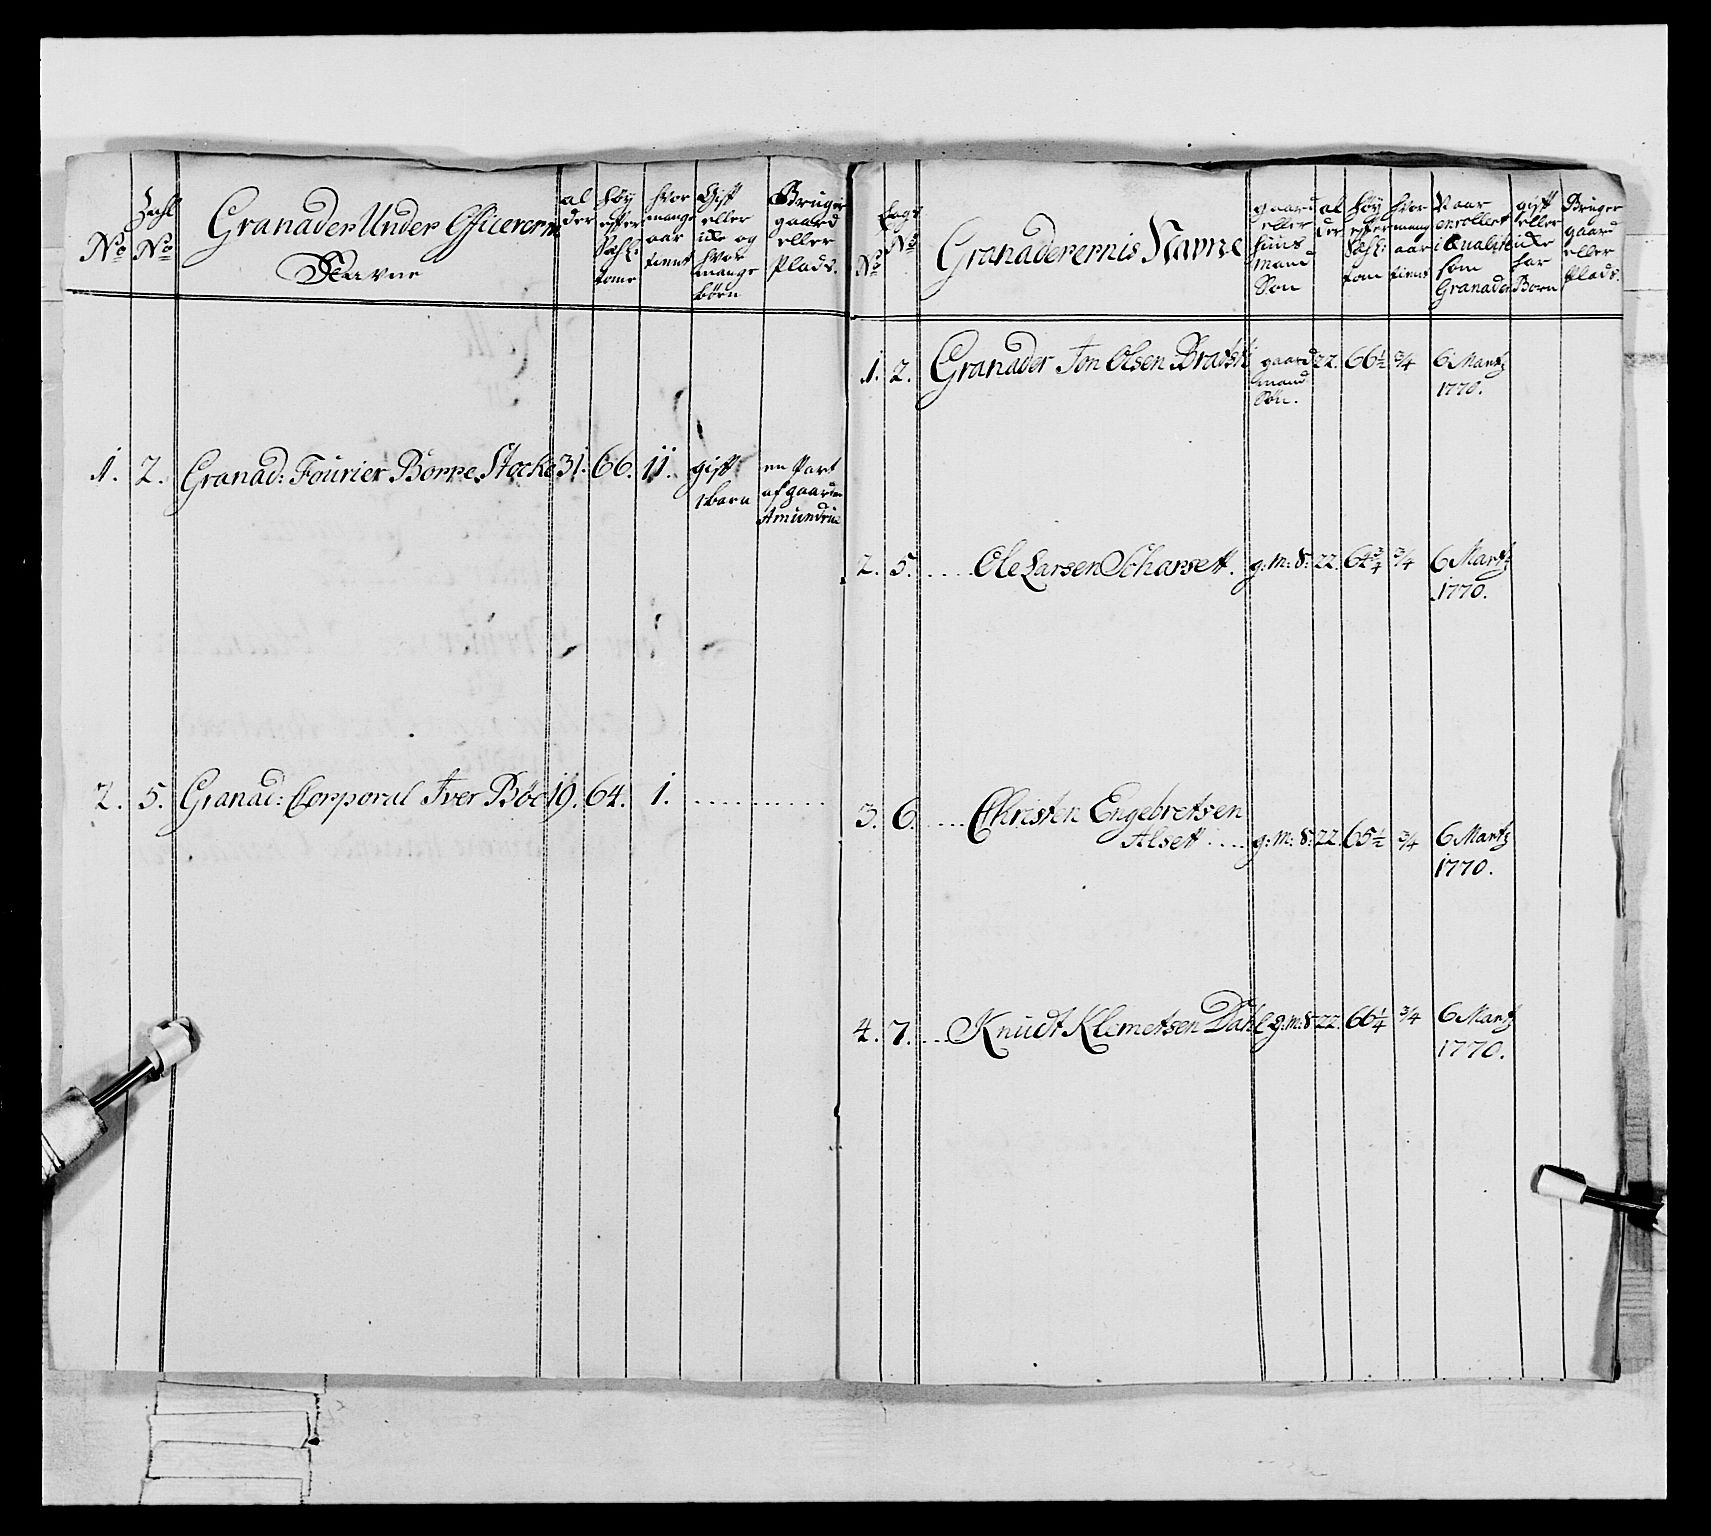 No
No
Granader Under Officerern
Navne
al
der
Höy
efter
tome
hvor
mange
aar
tient
Gift
eller
icke og
hvor
mange
börn
Bruger
gaard
eller
Plads.
1. 2. Granad: Fourier Börre Stocke 31. 66. 11. gift
1 barn
en Part
af gaarden
2. 5. Granad: Corporal Iver Böe 19. 64. 1. ..............
No
No
Granaderernis Navne
gaard
eller
huus
mand
Sön
al
der
Höy
efter
tom
hvor
mang
aar
tient
enrollert
i Qualite
som
Granader
gift
eller
icke
har
Born
Bruger
gaard
eller
Plads.
1. 2. Granader Jon Olsen 22. 66½ ¾ 6 Martz
gaard
mand
Sön.
1770.
2. 5. ..... Ole Larsen Scharsett. g: m: S: 22. 62¾ ¾ 6 Martz
1770.
3. 6. .... Christen Engebretsen
Alsett .... g: m: S: 22. 65½ ¾ 6 Martz
1770.
4. 7. ... Knudt Klemetsen Dahl g: m: S 22. 66¼ ¾ 6 Martz
1770.